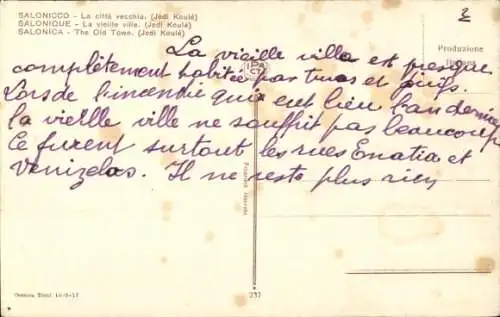 SALONICCO - La città vecchia. (Jédi Koulé)
SALONIQUE - La vieille ville. (Jédi Koulé)
SALONICA - The Old Town. (Jédi Koulé)
3
Produzione
Italiana
La vieille ville est presque
complètement habitée par turcs et juifs.
Lors de l'incendie qui eut lieu l'an dernier
la vieille ville ne souffrit pas beaucoup
Ce furent surtout les rues Enatia et
Venizelas. Il ne reste plus rien
Proprietà riservata
237
14-8-17